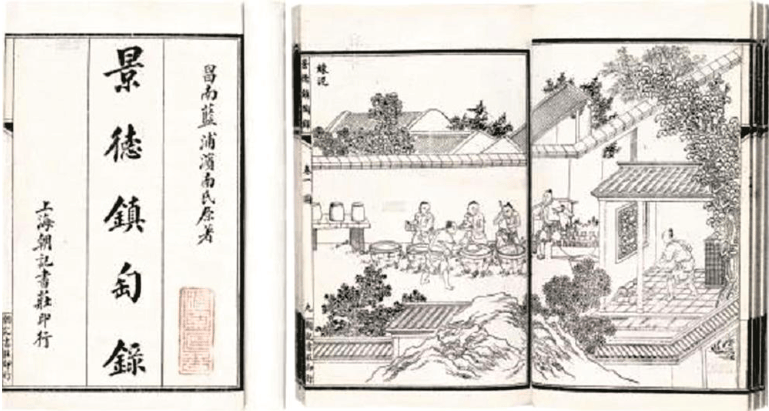 昌南藍浦濱南氏原著
景德鎮匋錄
上海朝記書莊印行
練泥
景德鎮陶錄 卷一 圖 九